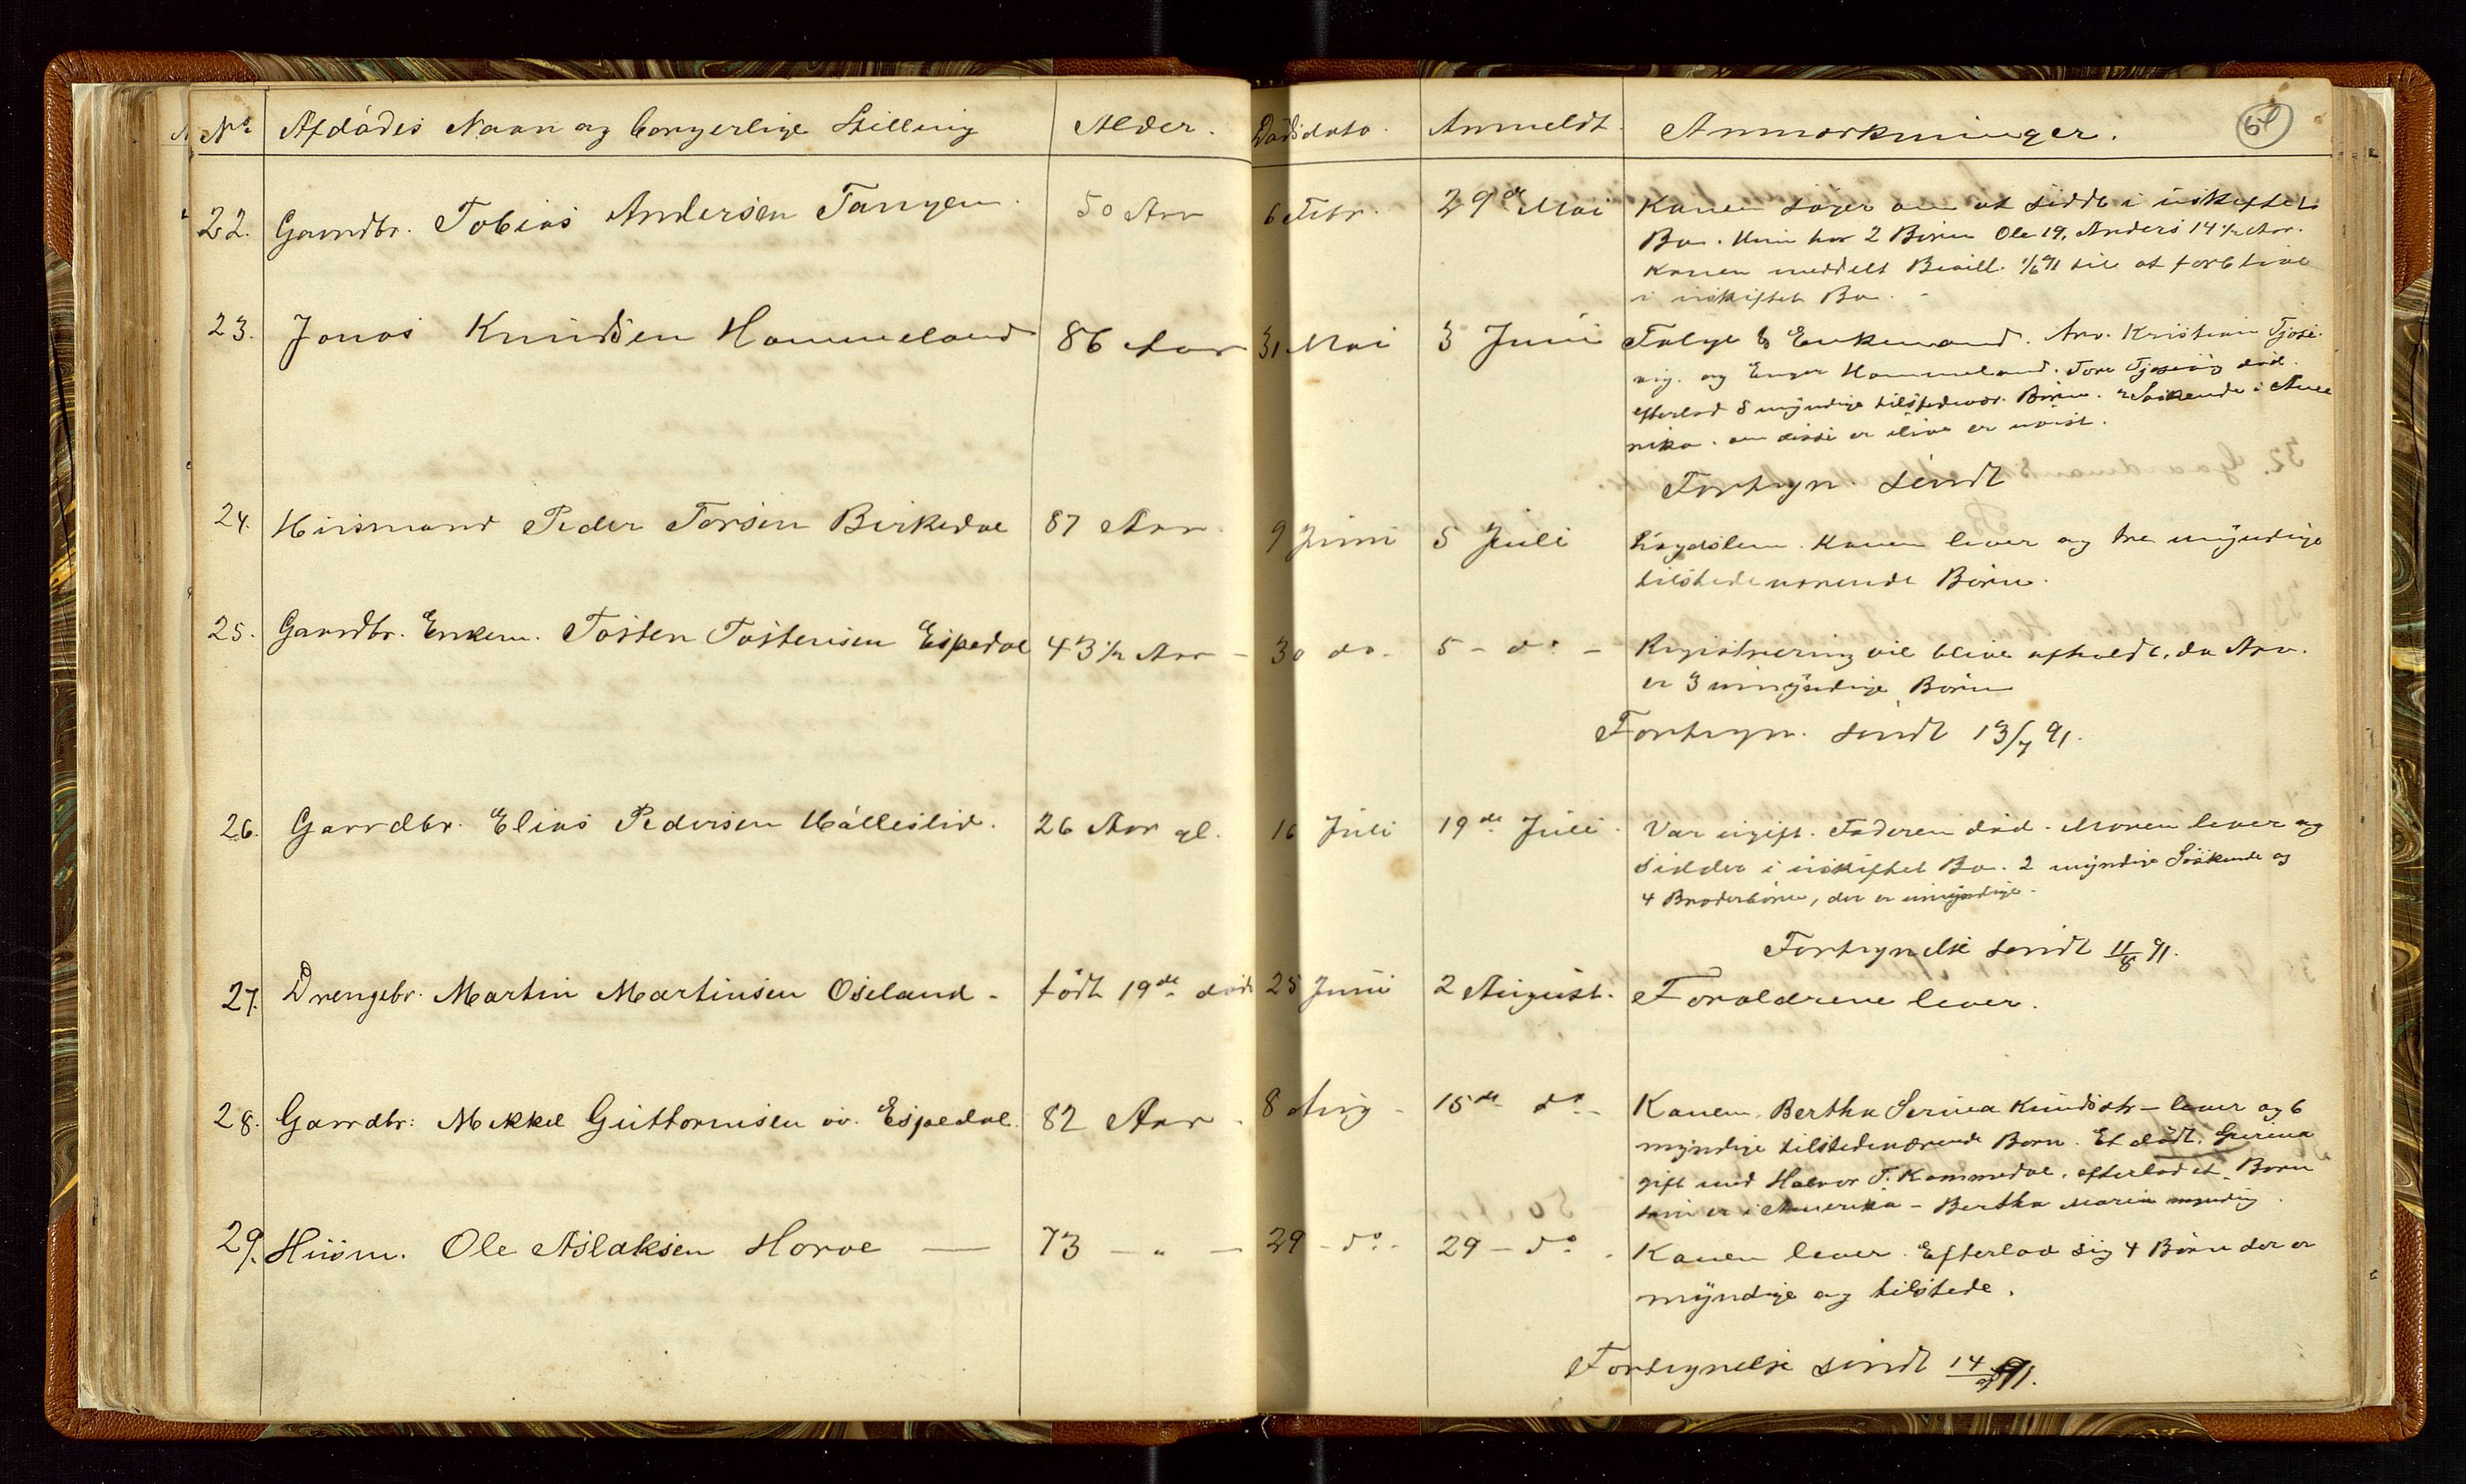 No. Afdødes Navn og borgerlige Stilling Alder. Dødsdato. Anmeldt. Anmærkninger. 61
22. Gaardbr. Tobias Andersen Tangen. 50 Aar 6 Febr. 29de Mai Konen søger om at sidde i uskiftet
Bo. Hun har 2 Børn Ole 19, Anders 14 1/2 Aar.
Konen meddelt Bevill. 1/6 91 til at forblive
i uskiftet Bo.
23. Jonas Knudsen Hammeland 86 Aar 31 Mai 3 Juni Enkemand. Arv. Kristian Tjøse-
vig. og Enger Hammeland. Tore Tjøsevig død.
efterlod 8 myndige tilstedevær. Børn. 2 Søskende i Ame
rika. om disse er ilive er uvist.
Fortegn. sendt
24. Huusmand Peder Torsen Birkedal 87 Aar 9 Juni 5 Juli Konen lever og tre myndige
tilstedeværende Børn.
25. Gaardbr. Enkem. Tosten Tostensen Espedal 43 1/2 Aar - 30 do. 5 - do - Registrering vil blive afholdt, da Arv.
er 3 umyndige Børn
Fortegn. sendt 13/7 91.
26. Gaardbr. Elias Pedersen Hølleslid. 26 Aar gl. 16 Juli 19de Juli. Var ugift. Faderen død. Moren lever og
sidder i uskiftet Bo. 2 myndige Søskende og
4 Broderbørn, der er umyndige.
Fortegnelse sendt 11/8 91.
27. Drengebr. Martin Martinsen Oseland - født 19de død 25 Juni 2 August. Forældrene lever.
28. Gaardbr: Mikkel Guttormsen øv. Espedal. 82 Aar. 8 Aug - 15de do. - Konen, Bertha Serina Knudsdtr - lever og 6
myndige tilstedeværende Børn. Et dødt, Gurina
gift med Halvor T. Kommedal, efterlod et Barn
som er i Amerika - Bertha Maria myndig.
29. Huusm. Ole Aslaksen Horve — 73 - " - 29 - do. - 29 - do. Konen lever. Efterlod sig 4 Børn der er
myndige og tilstede.
Fortegnelse sendt 14/9 91.